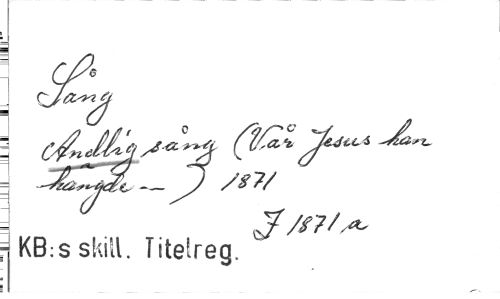 Sång
Andlig sång (Vår Jesus han
hängde --) 1871
F 1871 a
KB:s skill. Titelreg.